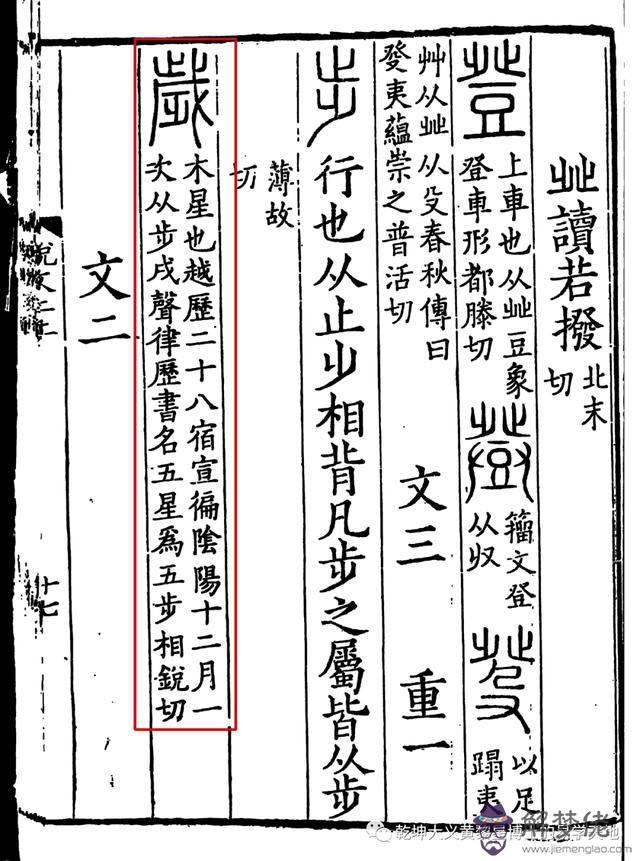 癶讀若撥
北末
切
登
上車也从癶豆象
登車形都滕切
𤼷
籒文登
从収
癹
以足
蹋夷
艸从癶从殳春秋傳曰
癹夷蘊崇之普活切
文三
重一
步
行也从止𣥂相背凡步之屬皆从步
薄故
切
歲
木星也越歷二十八宿宣徧陰陽十二月一
次从步戌聲律歷書名五星爲五步相銳切
文二
說文二上
十七
乾坤大义黄黎星博
解梦佬
www.jiemenglao.com